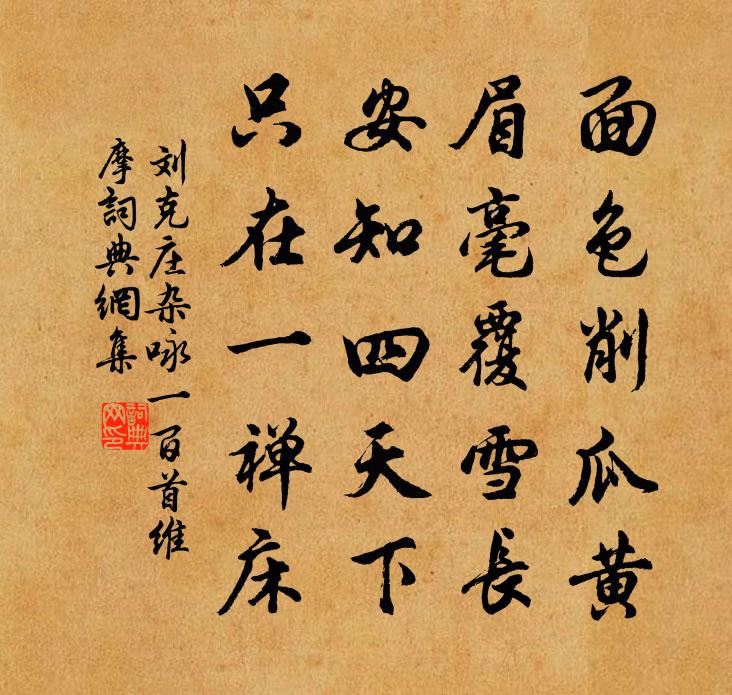 面色削瓜黄
眉毫覆雪長
安知四天下
只在一禅床
刘克庄杂咏一百首维
摩詞典網集
詞典
网印